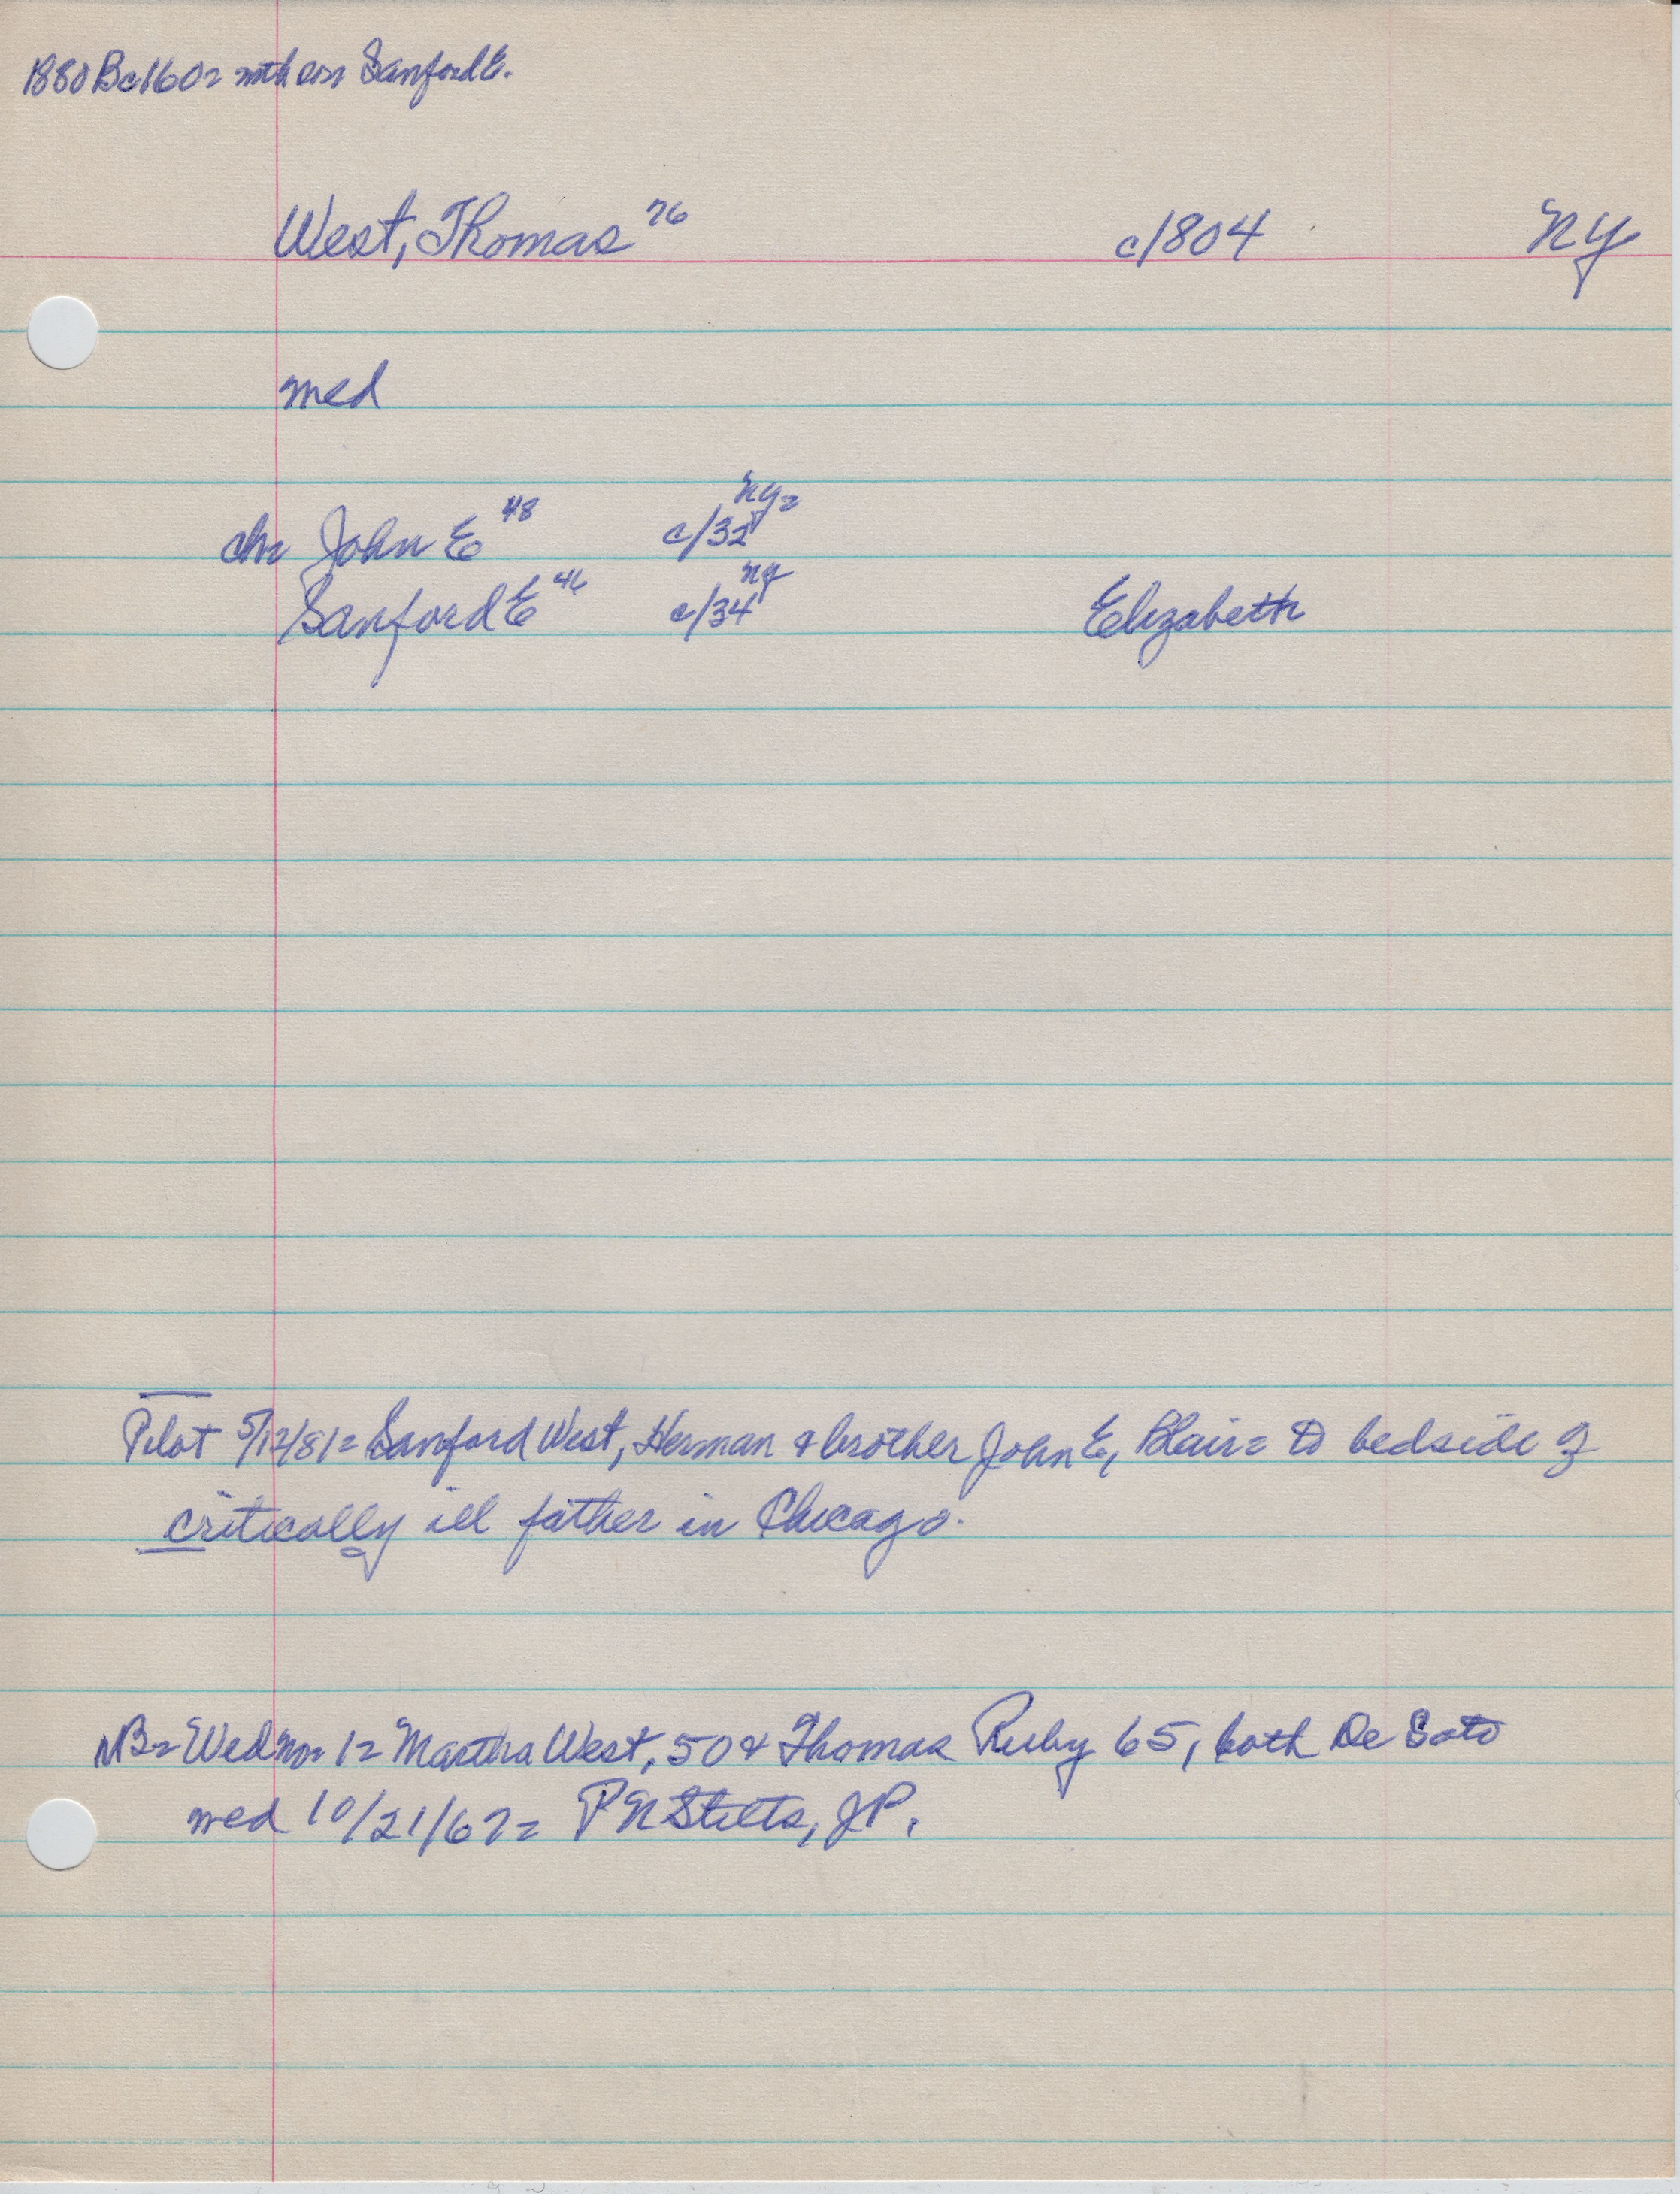 1880 Bc160= with son Sanford E.
West, Thomas 76 c/1804 NY
med
ch= John E 48 c/32 NY=
Sanford E 46 c/34 NY Elizabeth
Pilot 5/12/81= Sanford West, Herman & brother John E, Blair= to bedside of
critically ill father in Chicago.
NB= Wed no= 1= Martha West, 50 & Thomas Ruby 65, both De Soto
med 10/21/67= P N Stilts, JP.